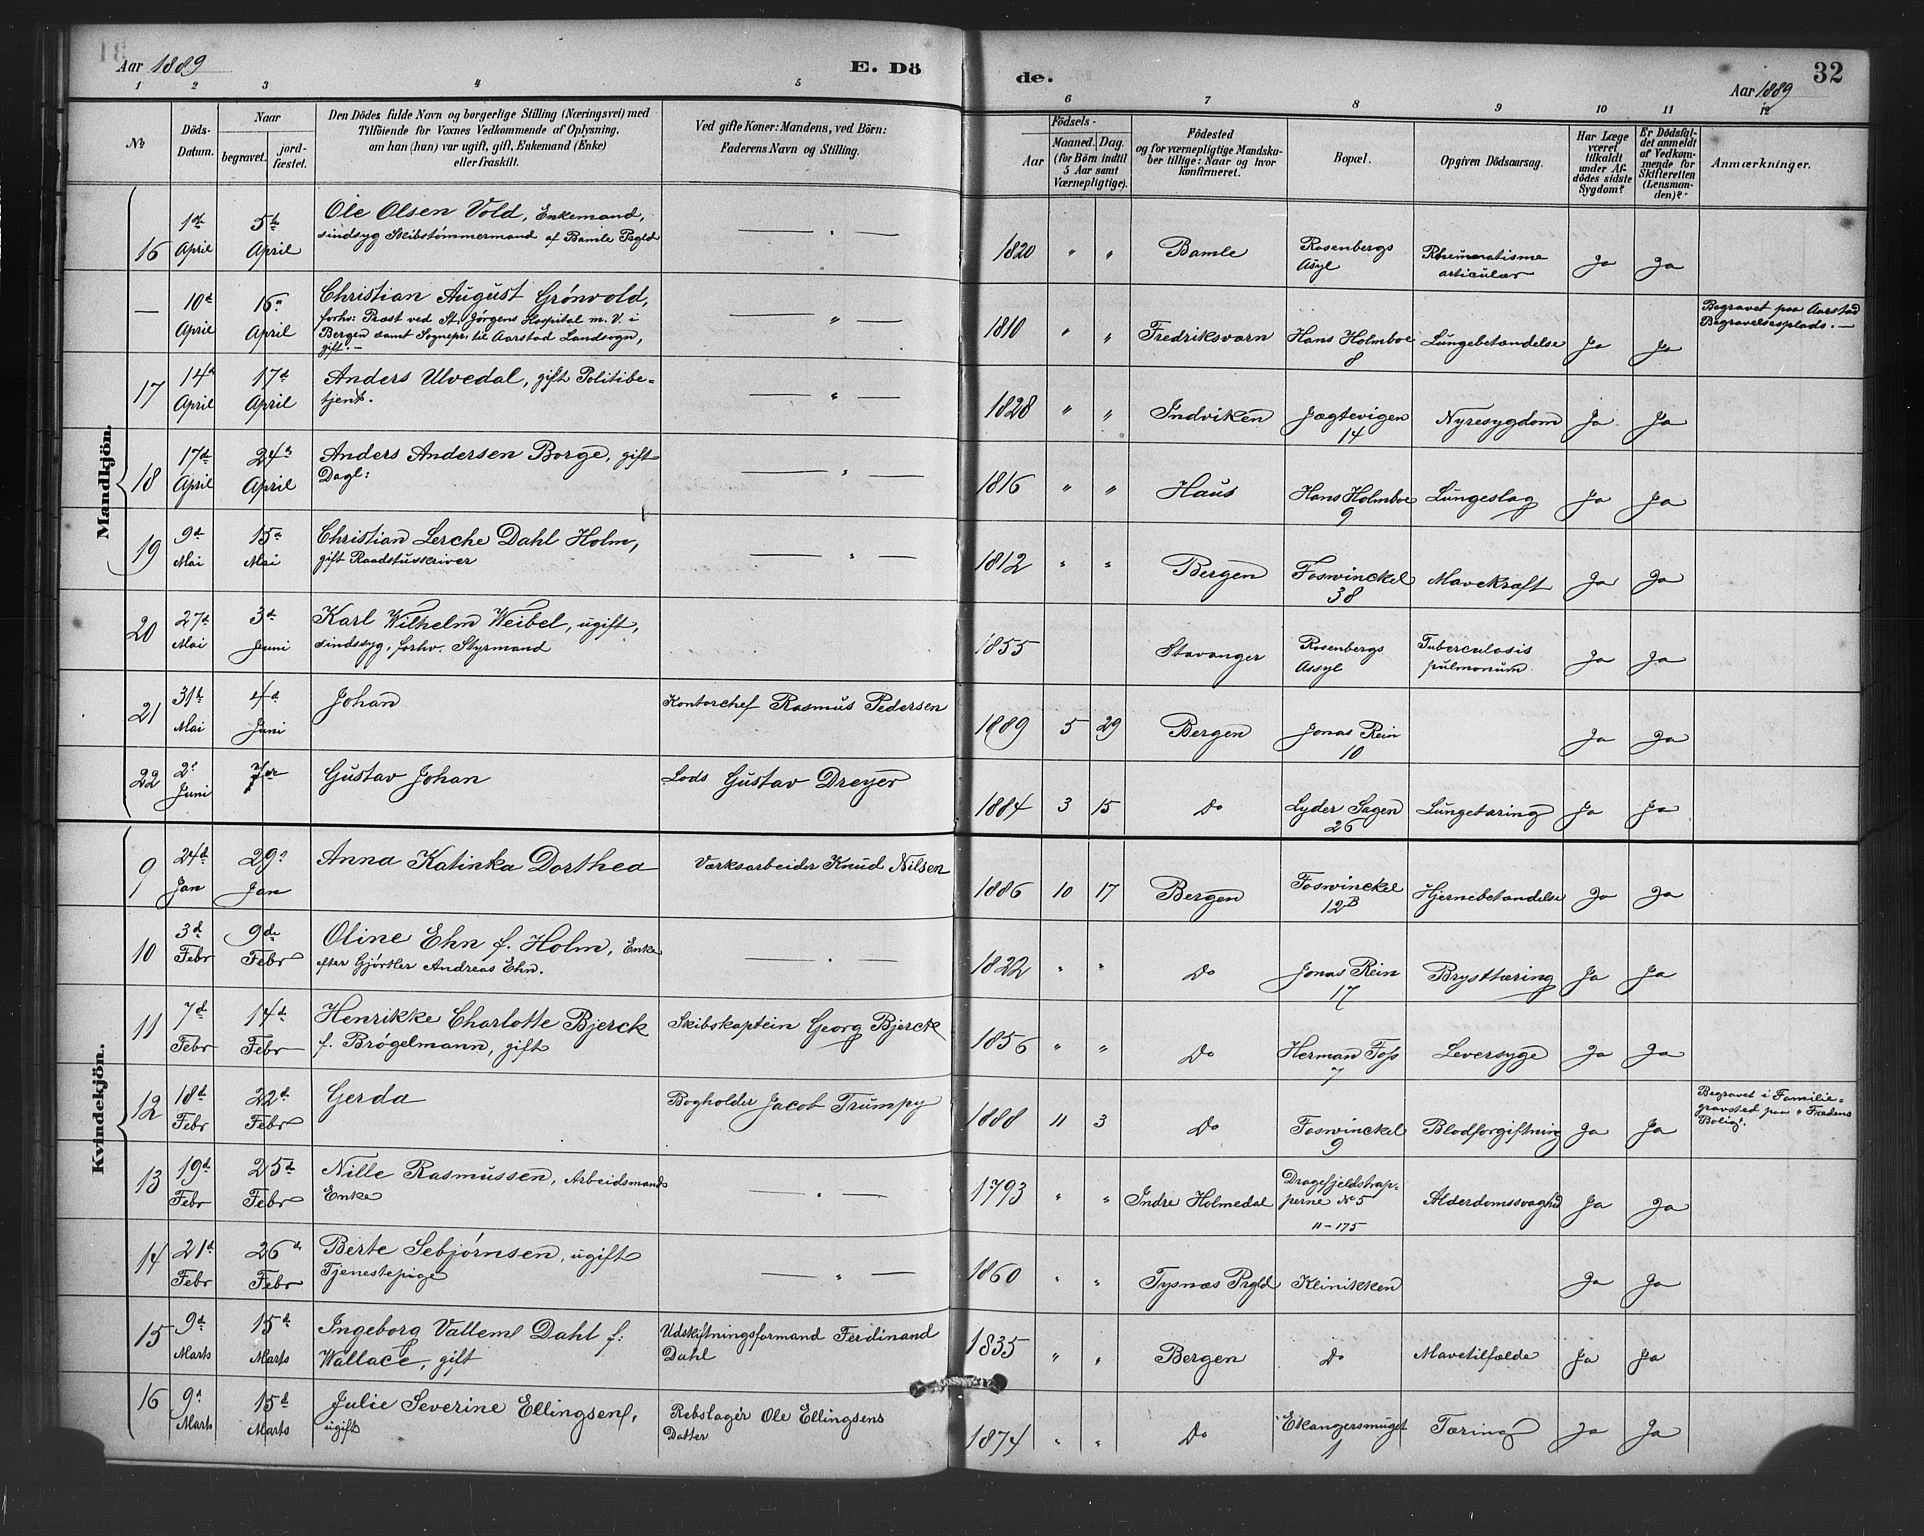 Aar 1889
E. Dö
de.
32
Aar 1889
1 2 3 4 5 6 7 8 9 10 11 12
No
Döds-Datum.
Naar
begravet. jordfæstet.
Den Dödes fulde Navn og borgerlige Stilling (Næringsvei) med
Tilföiende for Voxnes Vedkommende af Oplysning,
om han (hun) var ugift, gift, Enkemand (Enke)
eller fraskilt.
Ved gifte Koner: Mandens, ved Börn:
Faderens Navn og Stilling.
Födsels-
Aar Maaned. Dag.
(for Börn indtil
5 Aar samt
Værnepligtige).
Födested
og for værnepligtige Mandskaber tillige: Naar og hvor
konfirmeret.
Bopæl.
Opgiven Dödsaarsag.
Har Læge
været
tilkaldt
under Afdödes sidste
Sygdom?
Er Dödsfaldet anmeldt
af Vedkommende for
Skifteretten
(Lensmanden)?
Anmærkninger.
Mandkjön.
16 1ste April 5te April Ole Olsen Vold, Enkemand,
sindsyg Skibstømmermand af Bamle Prgld — " — 1820 " " Bamle Rosenbergs Asyl Rheumatisme articulær Ja Ja
— 10d April 16d April Christian August Grönvold,
forhv: Præst ved St. Jørgens Hospital m. V. i
Bergen samt Sognepr: til Aarstad Landsogn,
gift. — — " — 1810 " " Fredriksværn Hans Holmboe 8 Lungebetændelse Ja Ja Begravet paa Aarstad Begravelsesplads. —
17 14d April 17d April Anders Ulvedal, gift Politibe-
tjent. — " — 1828 " " Indviken Jægtevigen 14 Nyresygdom Ja Ja
18 17de April 24de April Anders Andersen Borge, gift
Dagl: — " — 1816 " " Haus Hans Holmboe 9 Lungeslag Ja Ja
19 9d Mai 15d Mai Christian Lerche Dahl Holm,
gift Raadstuskriver — " — 1812 " " Bergen Foswinckel 38 Mavekræft Ja Ja
20 27d Mai 3d Juni Karl Wilhelm Weibel, ugift,
sindssyg, forhv. Styrmand 1855 Stavanger Rosenbergs Assyl Tuberculosis pulmonum Ja Ja
21 31te Mai 4d Juni Johan Kontorchef Rasmus Pedersen 1889 5 29 Bergen Jonas Rein 10 Ja Ja
22 2d Juni 7de Gustav Johan Lods Gustav Dreyer 1884 3 15 Do Lyder Sagen 26 Lungetæring Ja Ja
Kvindekjön.
9 24d Jan 29d Jan Anna Katinka Dorthea Værksarbeider Knud Nilsen 1886 10 17 Bergen Foswinckel 12B Hjernebetændelse Ja Ja
10 3d Febr 9de Febr Oline Ehn f. Holm, Enke
efter Gjørtler Andreas Ehn. — " — 1822 " " Do Jonas Rein 17 Brysttæring Ja Ja
11 7d Febr 14d Febr Henrikke Charlotte Bjerck
f. Brögelmann, gift Skibskaptein Georg Bjerck 1856 " " Do Herman Foss 7 Leversyge Ja Ja
12 18d Febr 22d Febr Gerda Bogholder Jacob Trumpy 1888 11 3 Do Foswinckel 9 Blodforgiftning Ja Ja Begravet i Familiegravsted paa "Fredens Bolig".
13 19d Febr 25d Febr Nille Rasmussen, Arbeidsmands
Enke — " — 1793 " " Indre Holmedal Dragefjeldstrapperne No 5 11-175 Alderdomssvaghed Ja Ja
14 21d Febr 26d Febr Berte Sebjørnsen, ugift
Tjenestepige — " — 1860 " " Tysnæs Prgld Klinikken Ja Ja
15 9d Marts 15d Marts Ingeborg Dahl f:
Wallace, gift Udskiftningsformand Ferdinand
Dahl 1835 " " Bergen Do Mavetilfælde Ja Ja
16 9d Marts 15d Marts Julie Severine Ellingsen,
ugift Rebslager Ole Ellingsens
Datter 1874 " " Do Ekangersmuget 1 Tæring Ja Ja